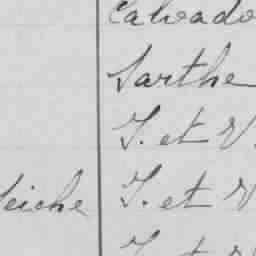 Calvado
Sarthe
I. et V.
Seiche I. et V
I. et V